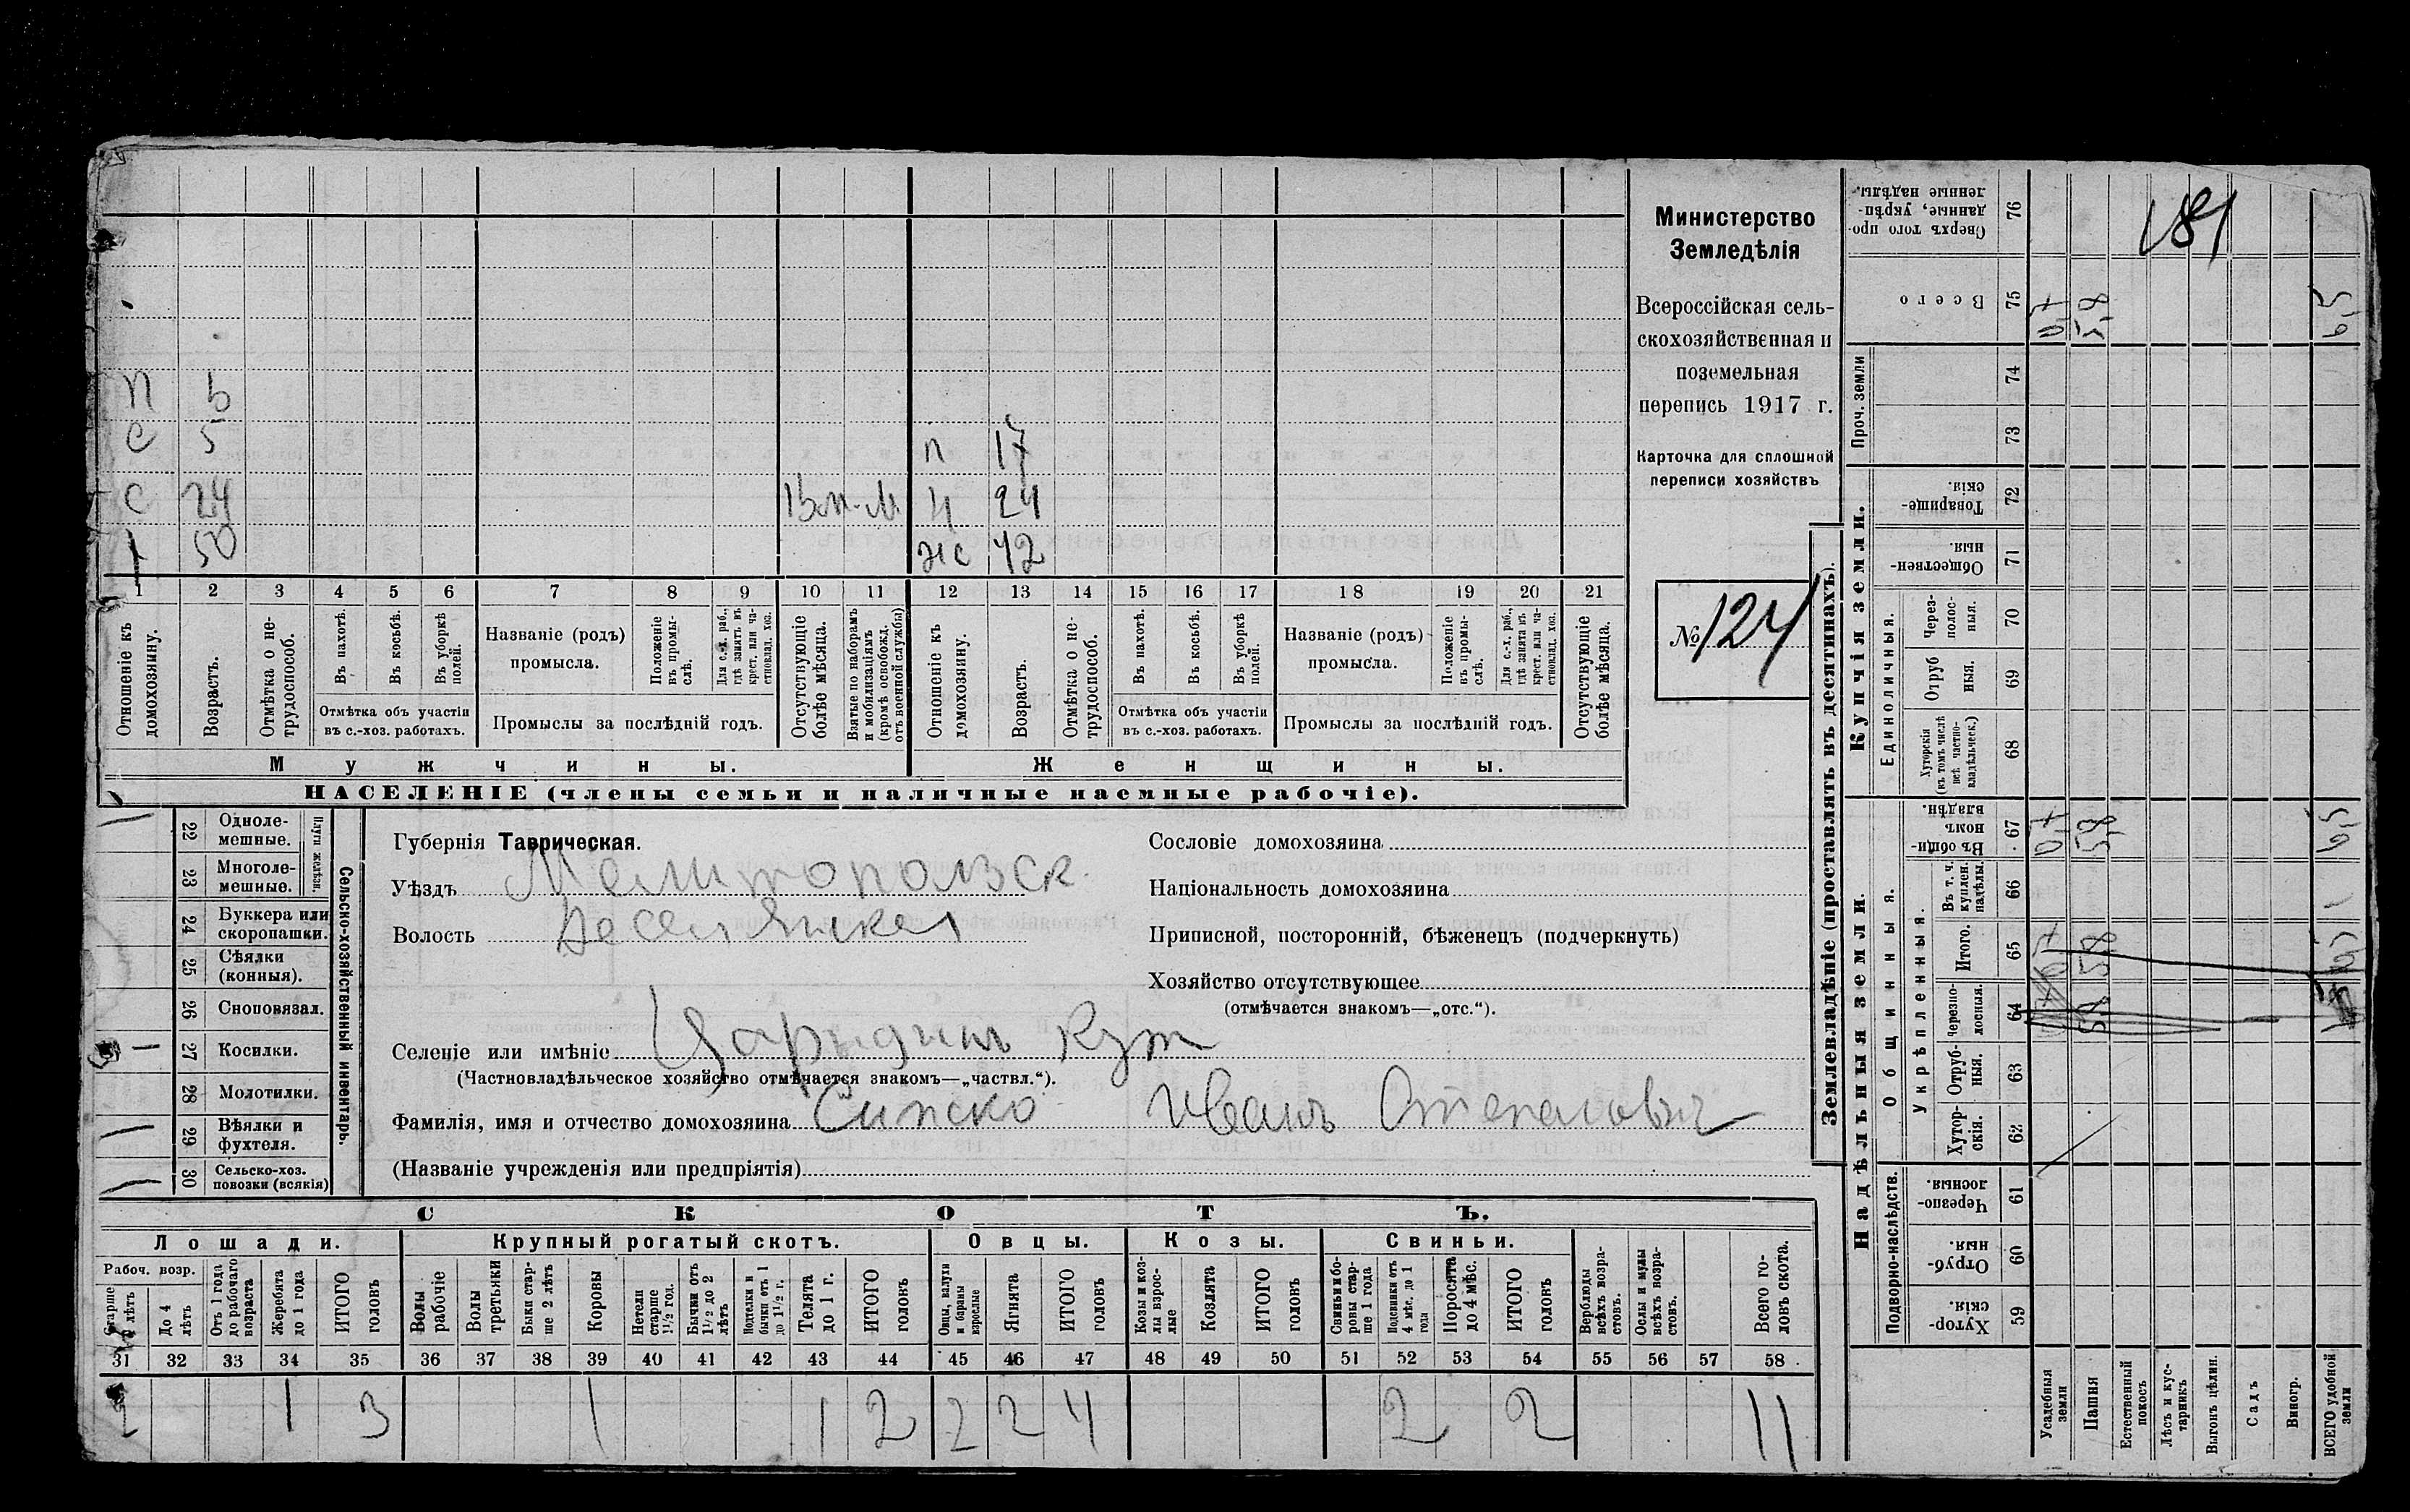 Министерство
Земледѣлія
Всероссійская сель-
скохозяйственная и
поземельная
перепись 1917 г.
Карточка для сплошной
переписи хозяйствъ
№ 124
181
п 6
с 5 п 17
с 24 24
50 же 42
1 2 3 4 5 6 7 8 9 10 11 12 13 14 15 16 17 18 19 20 21
Отношеніе къ домохозяину.
Возрастъ.
Отмѣтка о не-трудоспособ.
Въ пахотѣ.
Въ косьбѣ.
Въ уборкѣ полей.
Отмѣтка объ участіи
въ с.-хоз. работахъ.
Названіе (родъ)
промысла.
Положеніе въ промы-слѣ.
Для с.-х. раб., гдѣ занятъ въ крест. или ча-стновлад. хоз.
Промыслы за послѣдній годъ.
Отсутствующіе болѣе мѣсяца.
Взятые по наборамъ и мобилизаціямъ (кромѣ освобожд. отъ военной службы)
Отношеніе къ домохозяину.
Возрастъ.
Отмѣтка о не-трудоспособ.
Въ пахотѣ.
Въ косьбѣ.
Въ уборкѣ полей.
Отмѣтка объ участіи
въ с.-хоз. работахъ.
Названіе (родъ)
промысла.
Положеніе въ промы-слѣ.
Для с.-х. раб., гдѣ занята въ крест. или ча-стновлад. хоз.
Промыслы за послѣдній годъ.
Отсутствующіе болѣе мѣсяца.
Мужчины. Женщины.
НАСЕЛЕНІЕ (члены семьи и наличные наемные рабочіе).
22 Одноле-мешные.
23 Многоле-мешные.
Плуги желѣзн.
24 Буккера или скоропашки.
25 Сѣялки (конныя).
26 Сноповязал.
27 Косилки.
28 Молотилки.
29 Вѣялки и фухтеля.
30 Сельско-хоз. повозки (всякія)
Сельско-хозяйственный инвентарь.
Губернія Таврическая.
Уѣздъ Мелитопольск
Волость
Селеніе или имѣніе Царицинъ Кут
(Частновладѣльческое хозяйство отмѣчается знакомъ—„частвл.“).
Фамилія, имя и отчество домохозяина Сипско Иванъ Степановъ
(Названіе учрежденія или предпріятія)
Сословіе домохозяина
Національность домохозяина
Приписной, посторонній, бѣженецъ (подчеркнуть)
Хозяйство отсутствующее
(отмѣчается знакомъ—„отс.“).
СКОТЪ.
Лошади. Крупный рогатый скотъ. Овцы. Козы. Свиньи.
Рабоч. возр.
Старше 4 лѣтъ
До 4 лѣтъ
Отъ 1 года до рабочаго возраста
Жеребята до 1 года
ИТОГО головъ
Волы рабочіе
Волы третьяки
Быки стар-ше 2 лѣтъ
Коровы
Нетели старше 1½ год.
Бычки отъ 1½ до 2 лѣтъ
Подтелки и бычки отъ 1 до 1½ г.
Телята до 1 г.
ИТОГО головъ
Овцы, валухи и бараны взрослые
Ягнята
ИТОГО головъ
Козы и коз-лы взрос-лые
Козлята
ИТОГО головъ
Свиньи и бо-ровы стар-ше 1 года
Подсвинки отъ 4 мѣс. до 1 года
Поросята до 4 мѣс.
ИТОГО головъ
Верблюды всѣхъ возра-стовъ.
Ослы и мулы всѣхъ возра-стовъ.
Всего го-ловъ скота.
31 32 33 34 35 36 37 38 39 40 41 42 43 44 45 46 47 48 49 50 51 52 53 54 55 56 57 58
1 3 1 1 2 2 2 4 2 2 11
Землевладѣніе (проставлять въ десятинахъ).
Надѣльныя земли.
Подворно-наслѣдств.
Хутор-скія. 59
Отруб-ныя. 60
Черезпо-лосныя. 61
Общинныя.
Укрѣпленныя.
Хутор-скія. 62
Отруб-ныя. 63
Черезпо-лосныя. 64
Итого. 65
Въ т. ч. куплен. надѣлы. 66
Въ общи-номъ владѣн. 67
Купчія земли.
Единоличныя.
Хуторскія (въ томъ числѣ всѣ частно-владѣльческ.) 68
Отруб ныя. 69
Через-полос-ныя. 70
Обществен-ныя 71
Товарище-скія. 72
Проч. земли
73
74
Всего 75
Сверхъ того про-данные, укрѣп-ленные надѣлы. 76
Усадебныя земли
Пашня
Естественный покосъ
Лѣсъ и кус-тарникъ
Выгонъ цѣлин.
Садъ
Виногр.
ВСЕГО удобной земли
0,7 5,8 6,5
0,7 5,8 6,5
5,8
5,8